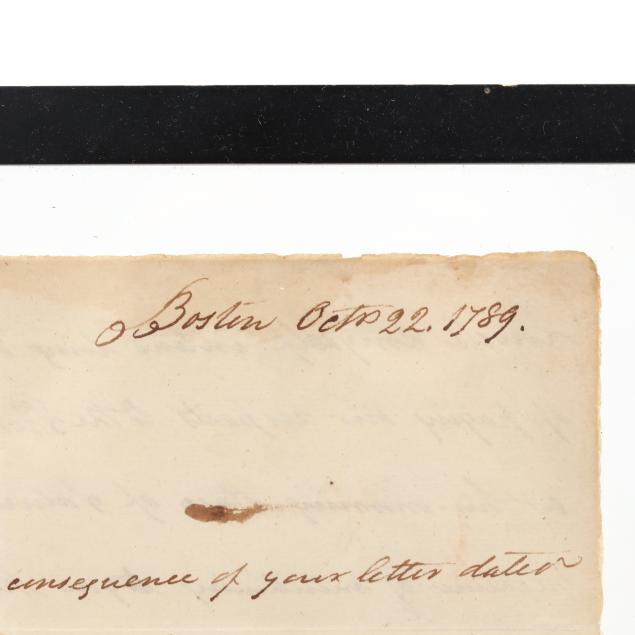 Boston Octo 22. 1789.
consequence of your letter dated